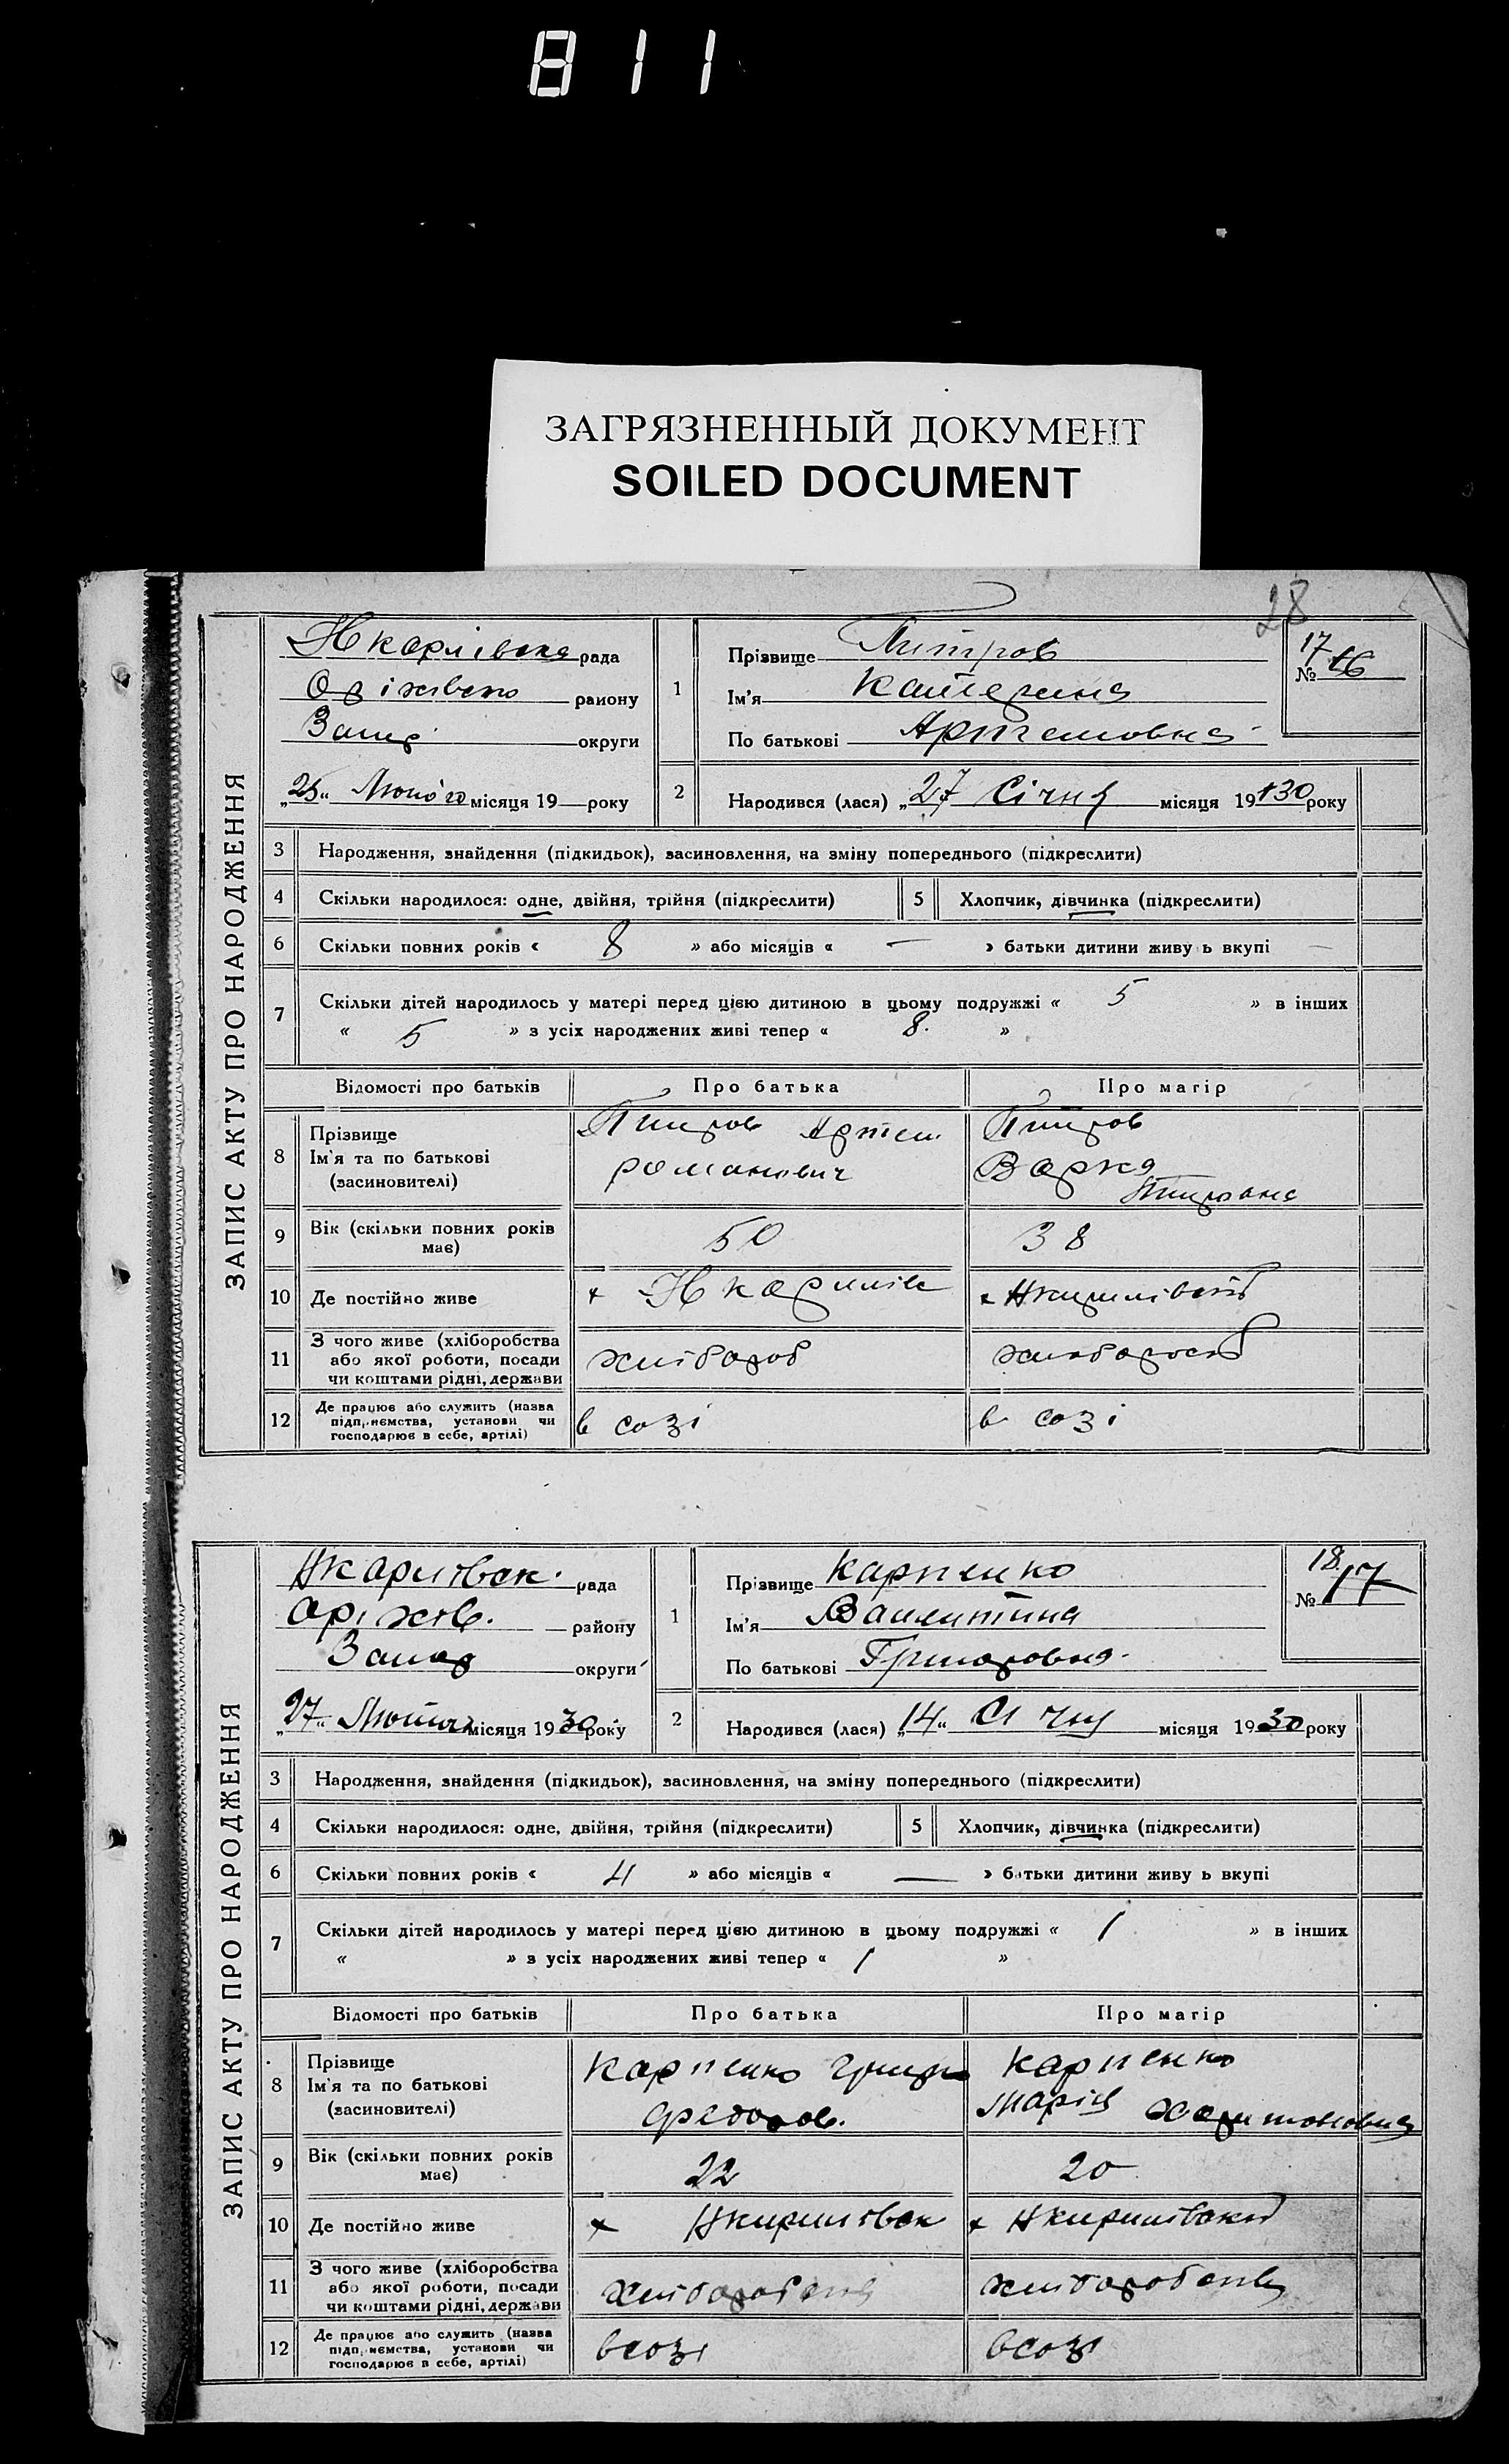 811
ЗАГРЯЗНЕННЫЙ ДОКУМЕНТ
SOILED DOCUMENT
28
ЗАПИС АКТУ ПРО НАРОДЖЕННЯ
рада
району
Запор округи
„25“ Лютого місяця 19 року
1 Прізвище Питров
Ім'я Катерина
По батькові Артемовна
17 № 16
2 Народився (лася) „27 Січня місяця 1930 року
3 Народження, знайдення (підкидьок), засиновлення, на зміну попереднього (підкреслити)
4 Скільки народилося: одне, двійня, трійня (підкреслити) 5 Хлопчик, дівчинка (підкреслити)
6 Скільки повних років « 8 » або місяців « — » батьки дитини живуть вкупі —
7 Скільки дітей народилось у матері перед цією дитиною в цьому подружжі « 5 » в інших
« 5 » з усіх народжених живі тепер « 8. »
Відомості про батьків Про батька Про матір
8 Прізвище Питров Артем Питров
Ім'я та по батькові романович Варка
(засиновителі)
9 Вік (скільки повних років має) 50 38
10 Де постійно живе х х
11 З чого живе (хліборобства або якої роботи, посади чи коштами рідні, держави хлібороб
12 Де працює або служить (назва підприємства, установи чи господарює в себе, артілі) в созі в созі
ЗАПИС АКТУ ПРО НАРОДЖЕННЯ
рада
Оріхів. району
Запор округи
„27“ Лютого місяця 1930 року
1 Прізвище Карпенко
Ім'я Валентина
По батькові Григоровна.
18. № 17
2 Народився (лася) „14“ Січня місяця 1930 року
3 Народження, знайдення (підкидьок), засиновлення, на зміну попереднього (підкреслити)
4 Скільки народилося: одне, двійня, трійня (підкреслити) 5 Хлопчик, дівчинка (підкреслити)
6 Скільки повних років « 4 » або місяців « — » батьки дитини живуть вкупі
7 Скільки дітей народилось у матері перед цією дитиною в цьому подружжі « 1 » в інших
« » з усіх народжених живі тепер « 1 »
Відомості про батьків Про батька Про матір
8 Прізвище Карпенко Карпенко
Ім'я та по батькові Федоров. Марія Харитоновна
(засиновителі)
9 Вік (скільки повних років має) 22 20
10 Де постійно живе х х
11 З чого живе (хліборобства або якої роботи, посади чи коштами рідні, держави
12 Де працює або служить (назва підприємства, установи чи господарює в себе, артілі) в созі в созі